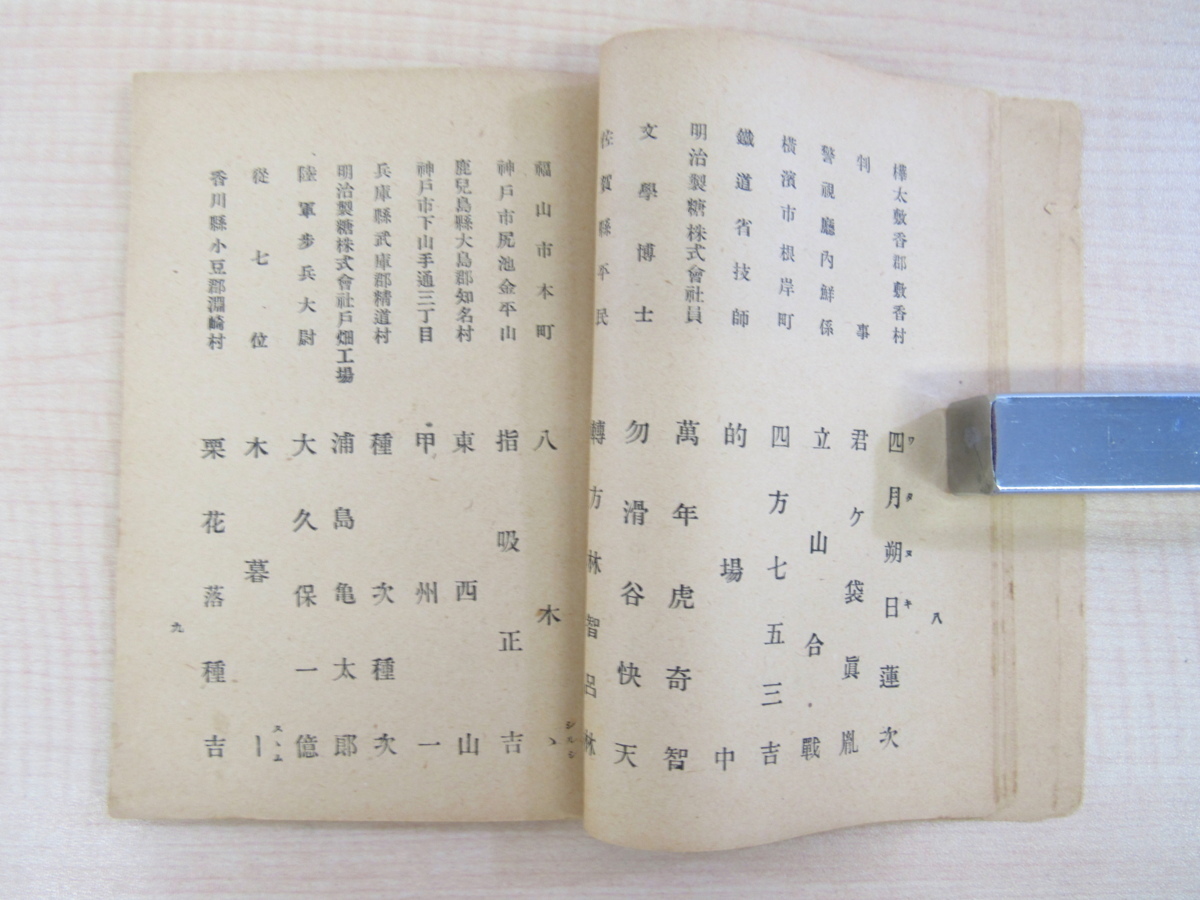 樺太敷香郡敷香村 四月朔日蓮次
ワタヌキ
判事 君ケ袋眞胤
警視廳內鮮係 立山合戰
橫濱市根岸町 四方七五三吉
鐵道省技師 的場中
明治製糖株式會社員 萬年虎奇智
文學博士 勿滑谷快天
佐賀縣平民 轉方林智呂林
八
福山市本町 八木ヽ
シルシ
神戶市尻池金平山 指吸正吉
鹿兒島縣大島郡知名村 東西山
神戶市下山手通三丁目 甲州一
兵庫縣武庫郡精道村 種次種次
明治製糖株式會社戶畑工場 浦島亀太郎
陸軍步兵大尉 大久保一億
從七位 木暮｜
スヽム
香川縣小豆郡淵崎村 栗花落種吉
九